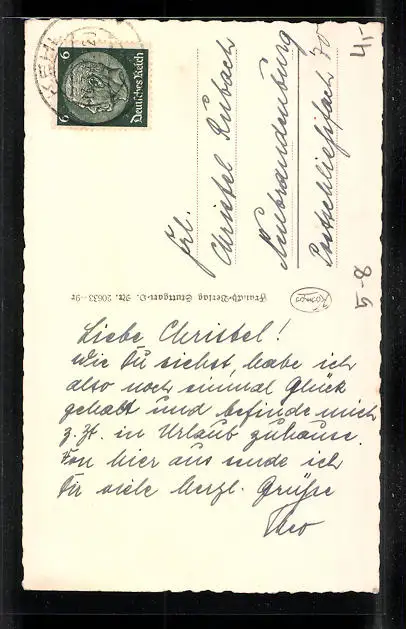 Liebe Christel!
Wie Du siehst, habe ich
also noch einmal Glück
gehabt und befinde mich
z. Zt. in Urlaub zuhause.
Von hier aus sende ich
Dir viele herzl. Grüße
Theo
Franckh-Verlag Stuttgart-O. Nr. 20633-9r
Kosmos
Frl.
Christel Rubach
Neubrandenburg
Postschließfach 70
Deutsches Reich
6 6
4,-
8-5